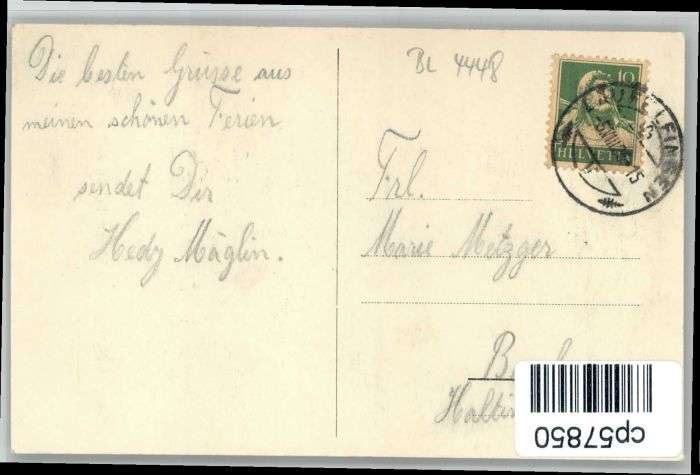 Die besten Grüsse aus
meinen schönen Ferien
sendet Dir
Hedy Mäglin.
BL 4448
10
HELVETIA
Frl.
Marie Metzger
cp57850